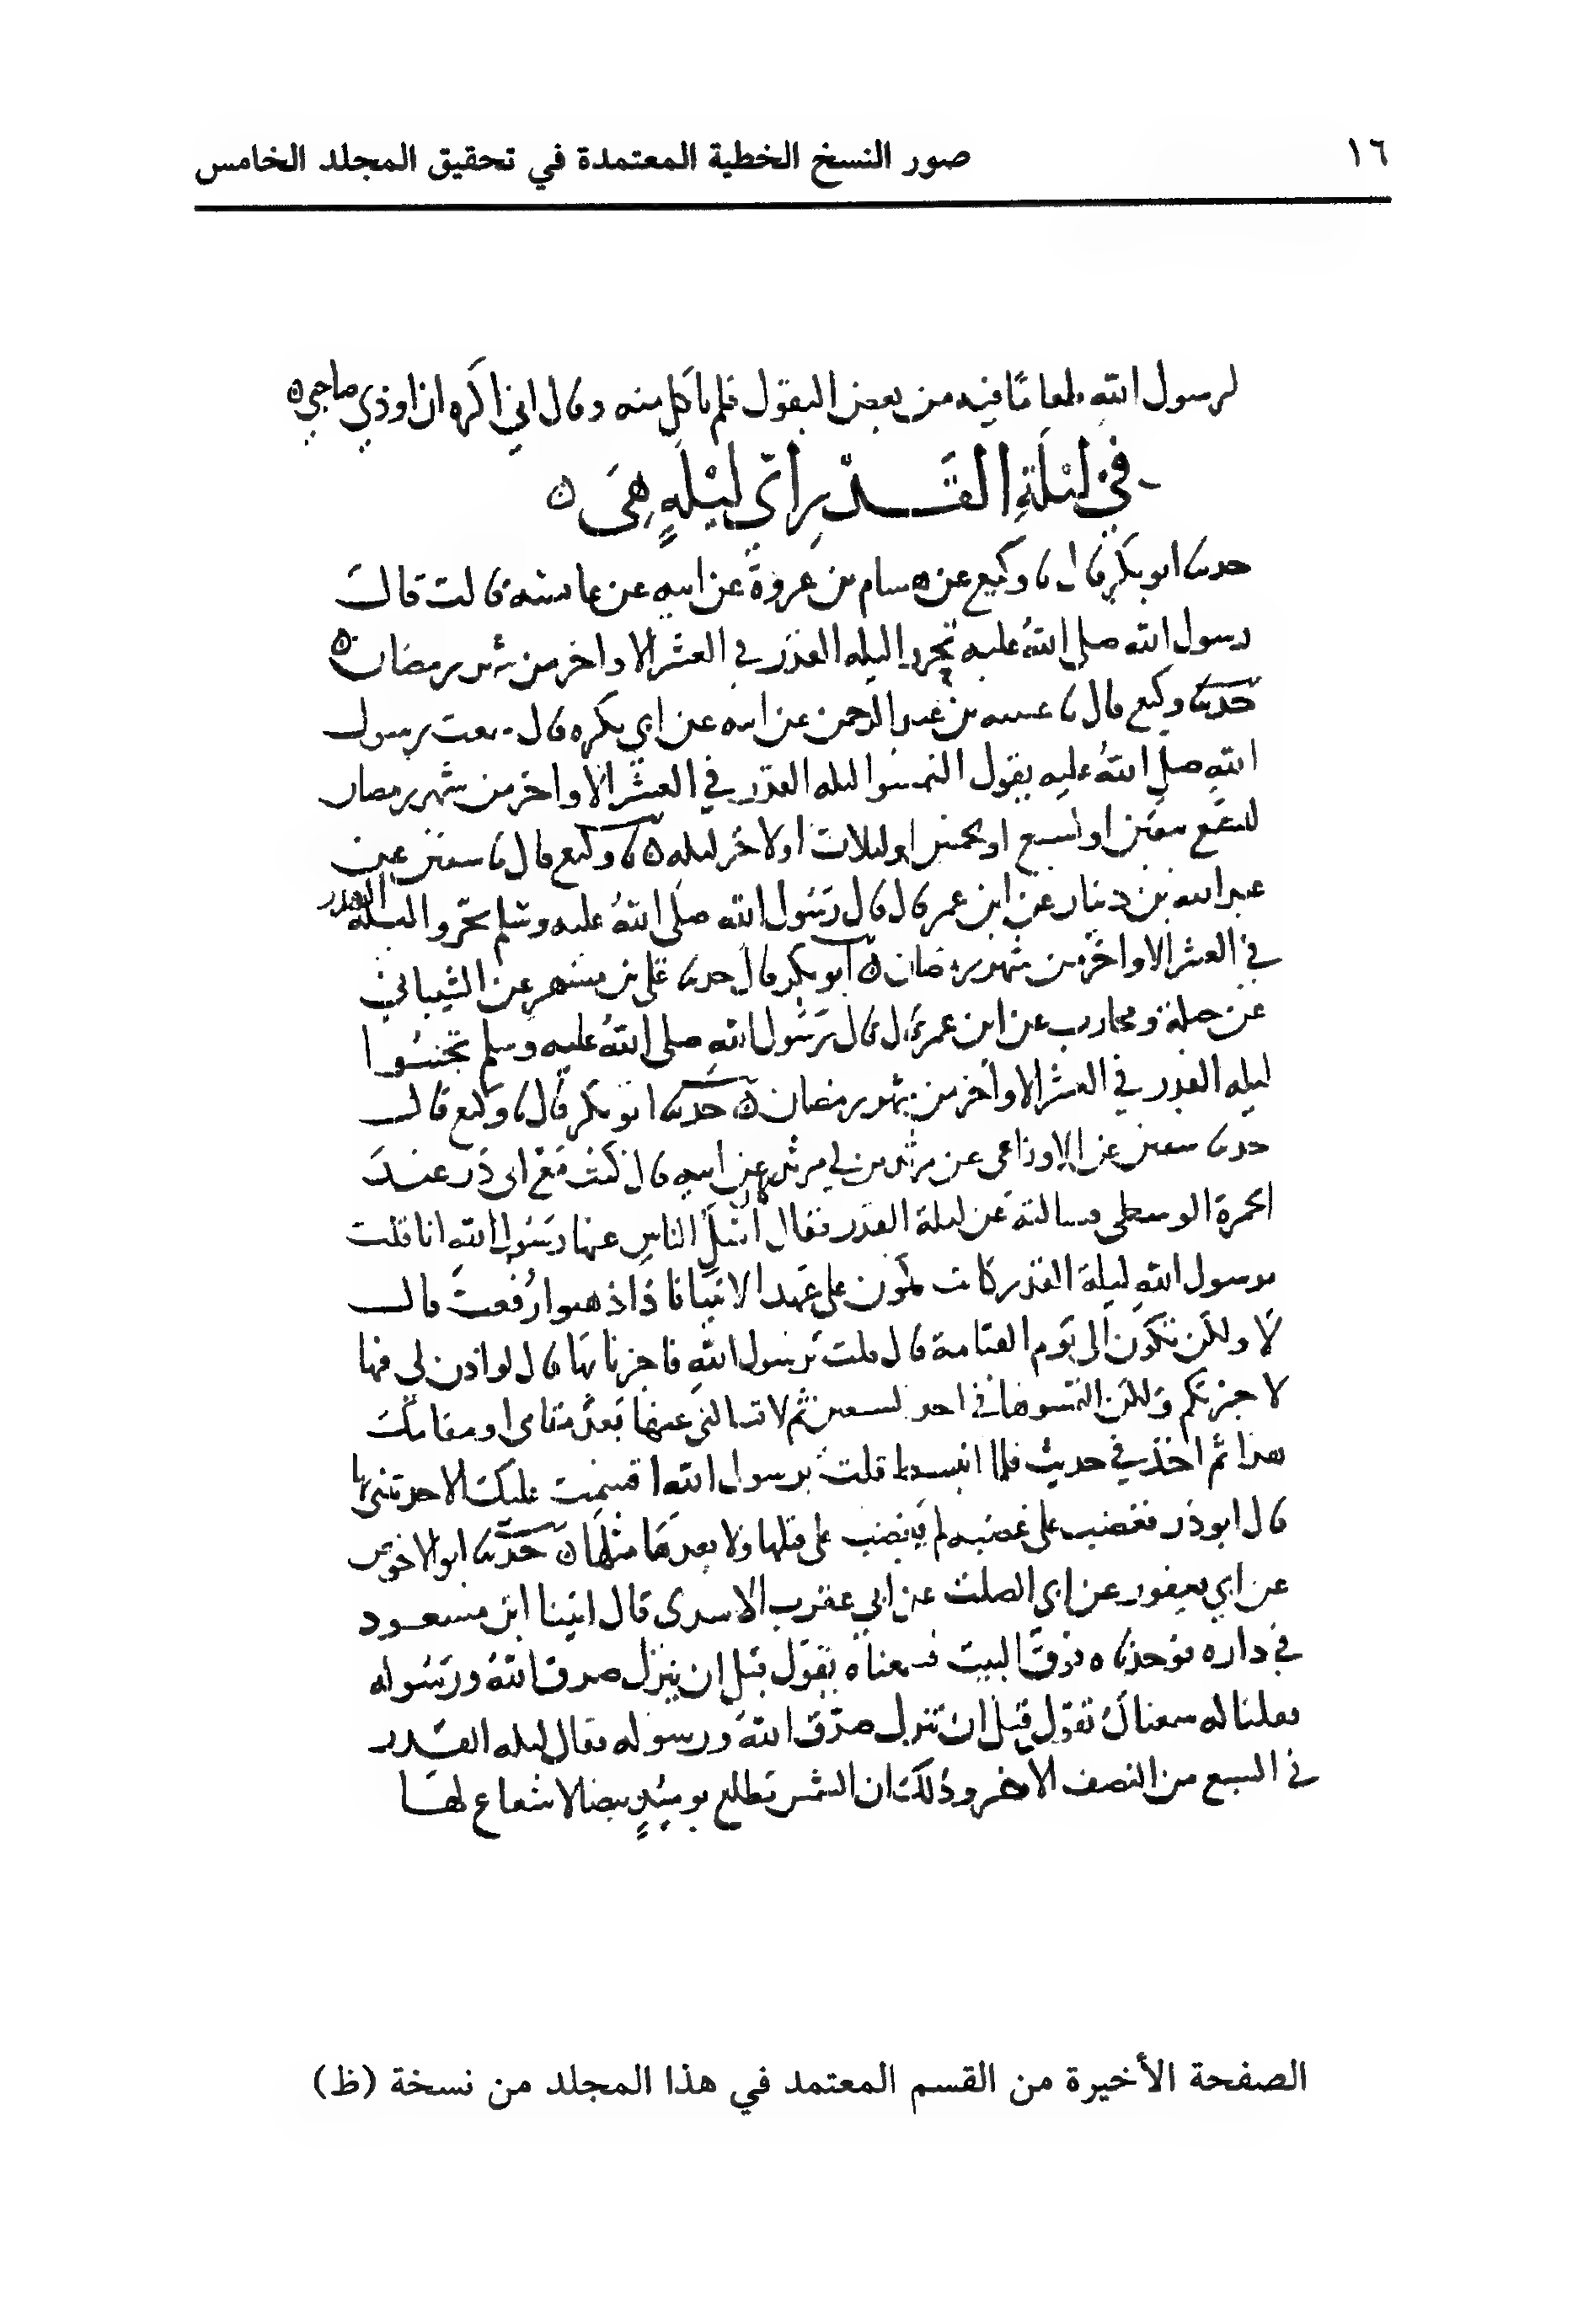 ١٦
صور النسخ الخطية المعتمدة في تحقيق المجلد الخامس
لرسول الله طعامًا فيه من بعض البقول فلم ياكل منه وقال اني اكره ان اوذي صاحبي ه
في ليلة القدر اي ليله هي ه
حدثنا ابو بكر قال نا وكيع عن هشام بن عروة عن ابيه عن عائشه قالت قال
رسول الله صلى الله عليه تحروا ليله القدر في العشر الاواخر من شهر رمضان ه
حدثنا وكيع قال نا عيينه بن عبد الرحمن عن ابيه عن ابي بكره قال سمعت رسول
الله صلى الله عليه يقول التمسوا ليله القدر في العشر الاواخر من شهر رمضان
لتسع يبقين او لسبع او لخمس او لثلاث او لاخر ليله ه نا وكيع قال نا سفين عن
عبد الله بن دينار عن ابن عمر قال قال رسول الله صلى الله عليه وسلم تحروا ليلة القدر
في العشر الاواخر من شهر رمضان ه ابو بكر قال حدثنا علي بن مسهر عن الشيباني
عن جبلة ومحارب عن ابن عمر قال قال رسول الله صلى الله عليه وسلم تحينوا
ليله القدر في العشر الاواخر من شهر رمضان ه حدثنا ابو بكر قال نا وكيع قال
حدثنا سفين عن الاوزاعي عن مرثد بن ابي مرثد عن ابيه قال كنت مع ابي ذر عند
الجمرة الوسطى فسالته عن ليلة القدر فقال كان اسل الناس عنها رسول الله انا قلت
يرسول الله ليلة القدر كانت تكون على عهد الانبيا فاذا ذهبوا رفعت قال
لا ولكن تكون الى يوم القيامة قال قلت يرسول الله فاخبرنا بها قال لو اذن لي فيها
لاخبرتكم ولكن التمسوها في احد السبعين ثم لا تسالني عنها بعد مقامي او مقامك
هذا ثم اخذ في حديث فلما انبسط قلت يرسول الله اقسمت عليك الا حدثتني بها
قال ابو ذر فغضب علي غضبه لم يغضب علي قبلها ولا بعدها مثلها ه حدثنا ابو الاحوص
عن ابي يعفور عن ابي الصلت عن ابي عقرب الاسدي قال اتينا ابن مسعود
في داره فوجدناه فوق البيت فسمعناه يقول قبل ان ينزل صدق الله ورسوله
فقلنا له سمعناك تقول قبل ان تنزل صدق الله ورسوله فقال ليله القدر
في السبع من النصف الاخر وذلك ان الشمس تطلع يومئذ بيضا لا شعاع لها
الصفحة الأخيرة من القسم المعتمد في هذا المجلد من نسخة (ظ)